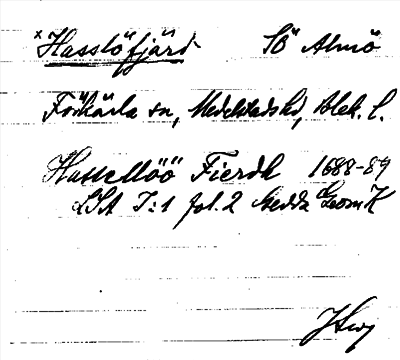 x Hasslöfjärd SÖ Almö
Förkärla sn, Medelstads hd, Blek. l.
Hasselöö Fierdh 1688-89
LSA I:1 fol. 2 Geom K